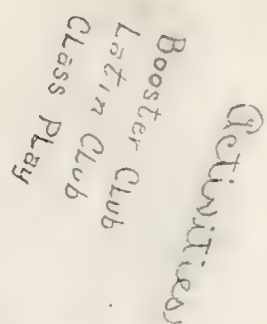 activities
Booster Club
Latin Club
Class Play